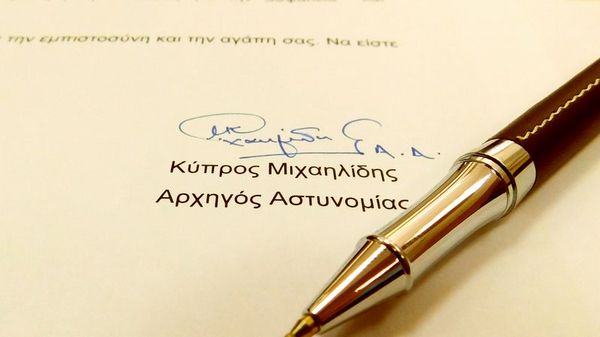 την εμπιστοσύνη και την αγάπη σας. Να είστε
Α.Α.
Κύπρος Μιχαηλίδης
Αρχηγός Αστυνομίας